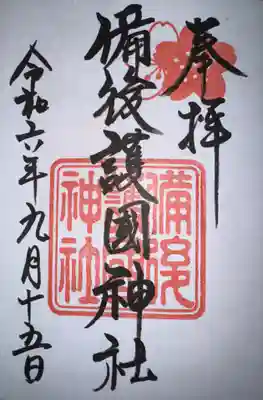 奉拝
備後護國神社
令和六年九月十五日
備後
護國
神社